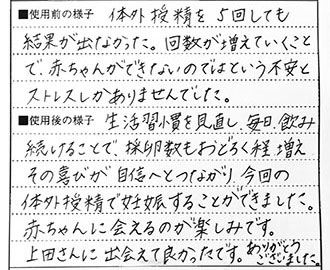 ■使用前の様子 体外授精を5回しても
結果が出なかった。回数が増えていくこと
で、赤ちゃんができないのではという不安と
ストレスしかありませんでした。
■使用後の様子 生活習慣を見直し、毎日、飲み
続けることで、採卵数もおどろく程増え
その喜びが自信へとつながり、今回の
体外授精で妊娠することができました。
赤ちゃんに会えるのが楽しみです。
上田さんに出会えて良かったです。ありがとう
ございました。